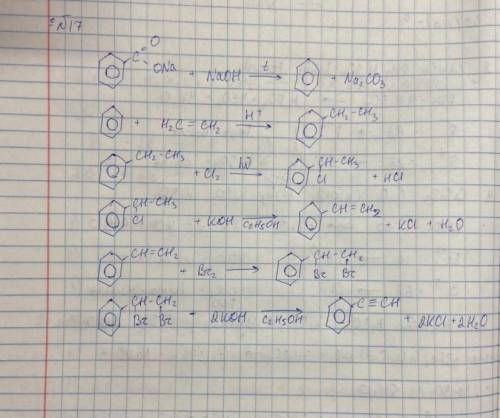 №17
C O ONa + NaOH t → + Na₂CO₃
+ H₂C=CH₂ H⁺ → CH₂-CH₃
CH₂-CH₃ + Cl₂ hν → CH-CH₃ Cl + HCl
CH-CH₃ Cl + KOH C₂H₅OH → CH=CH₂ + KCl + H₂O
CH=CH₂ + Br₂ → CH-CH₂ Br Br
CH-CH₂ Br Br - 2KOH C₂H₅OH → C≡CH + 2KCl + 2H₂O